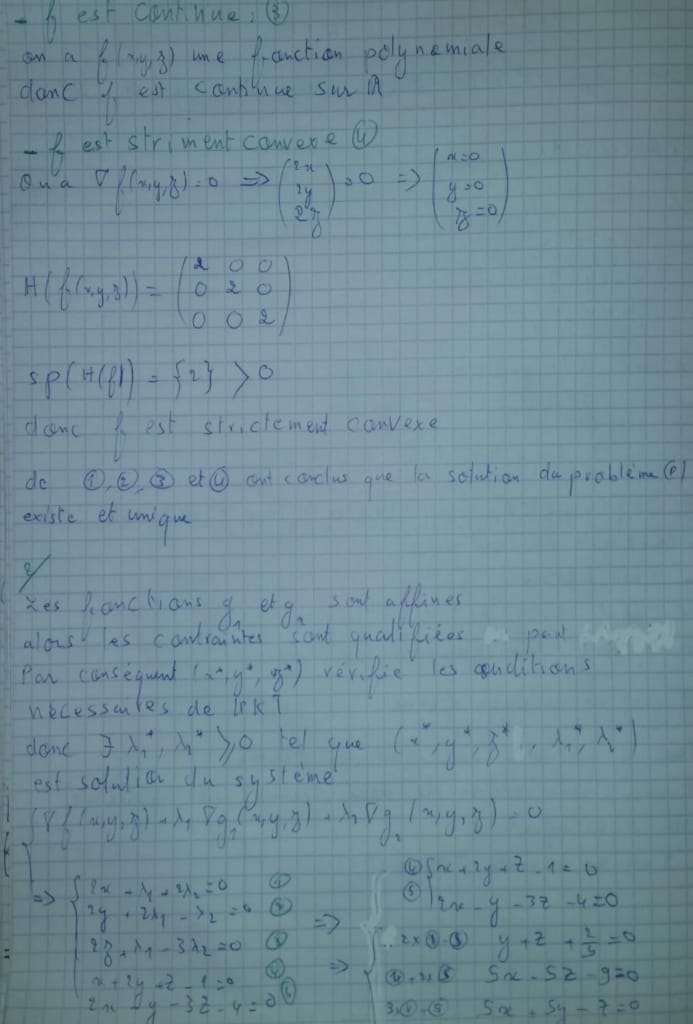 - f est continue : ③
on a f(x,y,z) une fonction polynomiale
donc f est continue sur ℝ
- f est striment convexe ④
On a ∇f(x,y,z)=0 => (2x 2y 2z) = 0 => (x=0 y=0 z=0)
H(f(x,y,z)) = (2 0 0
0 2 0
0 0 2)
sp(H(f)) = {2} > 0
donc f est strictement convexe
de ①, ②, ③ et ④ ont conclus que la solution du problème (P)
existe et unique
2/
Les fonctions g₁ et g₂ sont affines
alors les contraintes sont qualifiées
Par conséquent (x*, y*, z*) vérifie les conditions
nécessaires de KKT
donc ∃ λ₁*, λ₂* ⩾ 0 tel que (x*, y*, z*, λ₁*, λ₂*)
est solution du système
∇f(x,y,z) + λ₁ ∇g₁(x,y,z) + λ₂ ∇g₂(x,y,z) = 0
=> { 2x + λ₁ + 2λ₂ = 0 ①
2y + 2λ₁ - λ₂ = 0 ②
2z + λ₁ - 3λ₂ = 0 ③
x + 2y + z - 1 = 0 ④
2x - y - 3z - 4 = 0 ⑤
=> ④ { x + 2y + z - 1 = 0
⑤ 2x - y - 3z - 4 = 0
=> y + z + 2/5 = 0
5x - 5z - 9 = 0
5x + 5y - 7 = 0